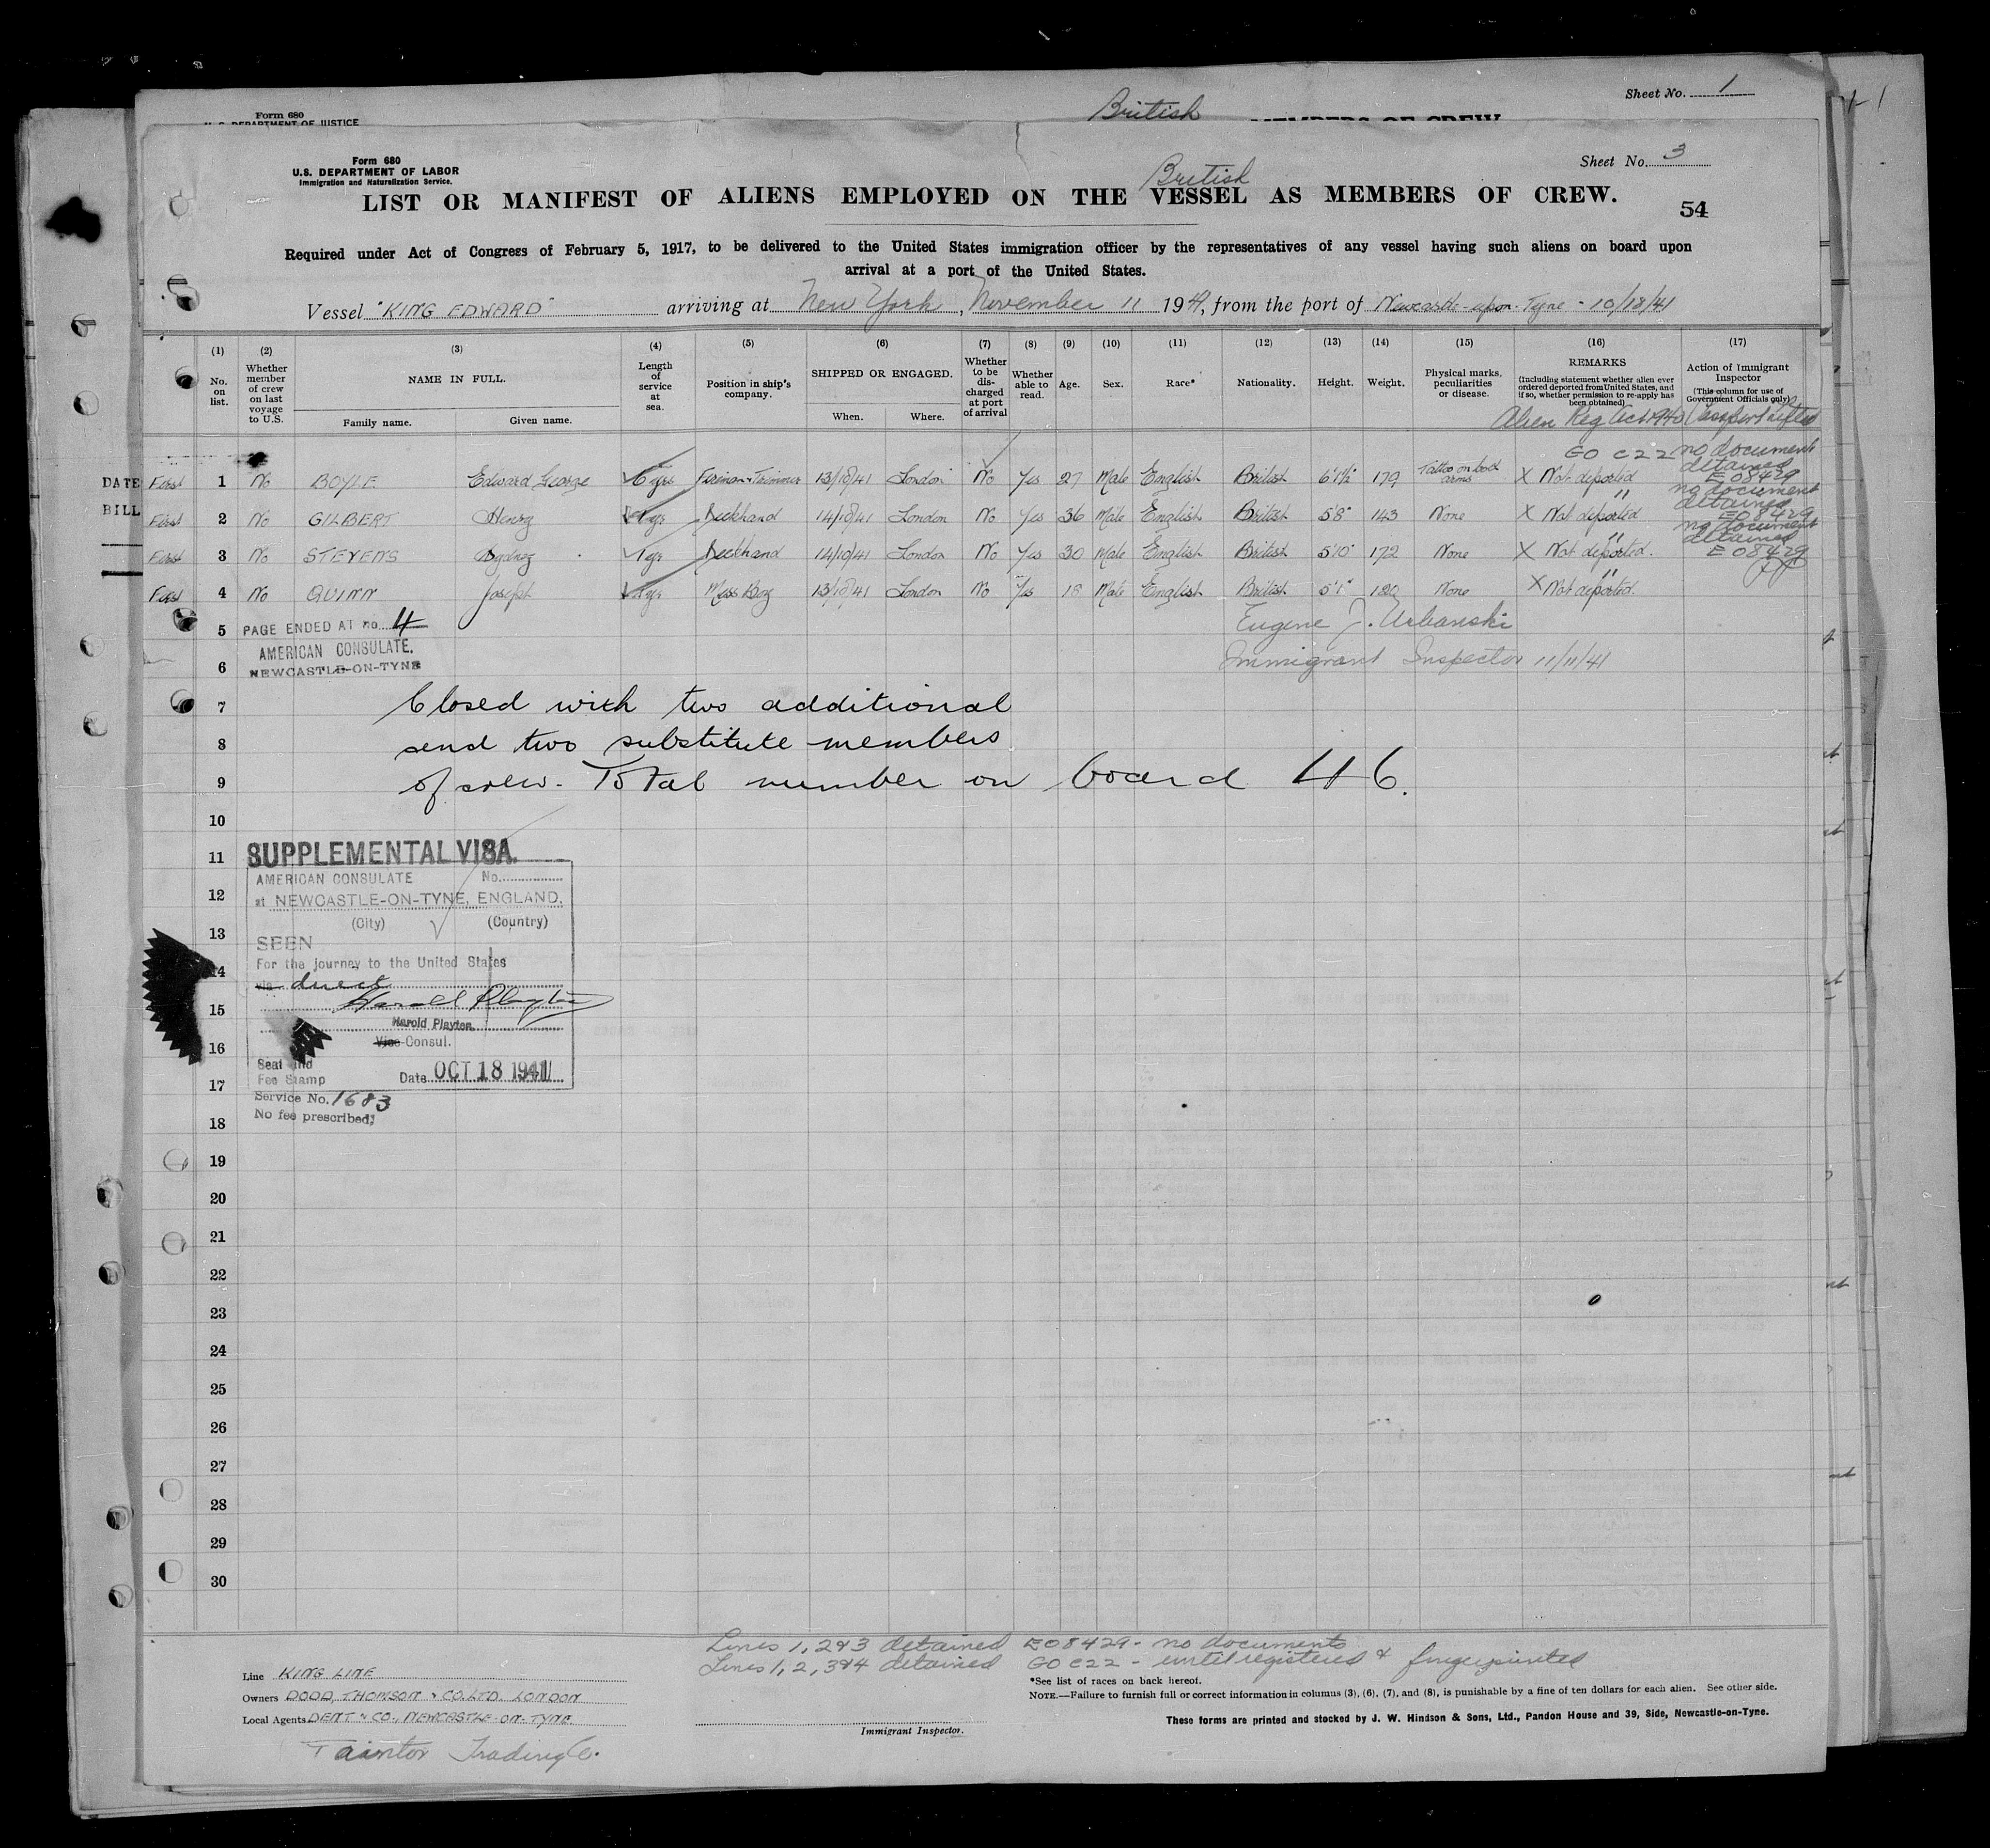 Sheet No. 1
Form 680
U. S. DEPARTMENT OF JUSTICE
British
MEMBERS OF CREW
Form 680
U.S. DEPARTMENT OF LABOR
Immigration and Naturalization Service.
Sheet No. 3
British
LIST OR MANIFEST OF ALIENS EMPLOYED ON THE VESSEL AS MEMBERS OF CREW.
54
Required under Act of Congress of February 5, 1917, to be delivered to the United States immigration officer by the representatives of any vessel having such aliens on board upon
arrival at a port of the United States.
Vessel "KING EDWARD" arriving at New York, November 11 1941, from the port of Newcastle-upon-Tyne - 10/18/41
(1) (2) (3) (4) (5) (6) (7) (8) (9) (10) (11) (12) (13) (14) (15) (16) (17)
No. on list.
Whether member of crew on last voyage to U.S.
NAME IN FULL.
Family name. Given name.
Length of service at sea.
Position in ship's company.
SHIPPED OR ENGAGED.
When. Where.
Whether to be discharged at port of arrival
Whether able to read.
Age.
Sex.
Race*
Nationality.
Height.
Weight.
Physical marks, peculiarities or disease.
REMARKS
(Including statement whether alien ever ordered deported from United States, and if so, whether permission to re-apply has been obtained)
Action of Immigrant Inspector
(This column for use of Government Officials only)
Alien Reg Act 1940
GO C22 no document
detained
E08429
DATE First 1 No BOYLE Edward George 6 yrs Fireman & Trimmer 13/10/41 London No Yes 27 Male English British 6'1½" 179 Tattoo on both arms X Not deported
no document
detained
E08429
BILL First 2 No GILBERT Henry yr Deckhand 14/10/41 London No Yes 36 Male English British 5'8" 143 None X Not deported "
no document
detained
E08429
First 3 No STEVENS Sydney 1 yr Deckhand 14/10/41 London No Yes 30 Male English British 5'10" 172 None X Not deported. "
First 4 No QUINN Joseph yr Mess Boy 13/10/41 London No Yes 18 Male English British 5'1" 120 None X Not deported. "
5 PAGE ENDED AT no. 4
Eugene J. Urbanski
6 AMERICAN CONSULATE,
NEWCASTLE-ON-TYNE
Immigrant Inspector 11/11/41
7 Closed with two additional
8 and two substitute members
9 of crew. Total number on board 46.
10
11 SUPPLEMENTAL VISA.
AMERICAN CONSULATE No.
12 at NEWCASTLE-ON-TYNE, ENGLAND.
(City) (Country)
13
SEEN
For the journey to the United States
14
via direct
15 Harold Playter
Harold Playter
16 Vice Consul.
Seal and
Fee Stamp
17 Date OCT 18 1941
Service No. 1683
No fee prescribed.
18
19
20
21
22
23
24
25
26
27
28
29
30
Lines 1, 2 & 3 detained E08429 - no documents
Lines 1, 2, 3 & 4 detained GO C22 - until registered & fingerprinted
Line KING LINE
Owners DODD, THOMSON & CO. LTD. LONDON
Local Agents DENT & CO., NEWCASTLE-ON-TYNE
Taintor Trading Co.
Immigrant Inspector.
*See list of races on back hereof.
NOTE.—Failure to furnish full or correct information in columus (3), (6), (7), and (8), is punishable by a fine of ten dollars for each alien. See other side.
These forms are printed and stocked by J. W. Hindson & Sons, Ltd., Pandon House and 39, Side, Newcastle-on-Tyne.